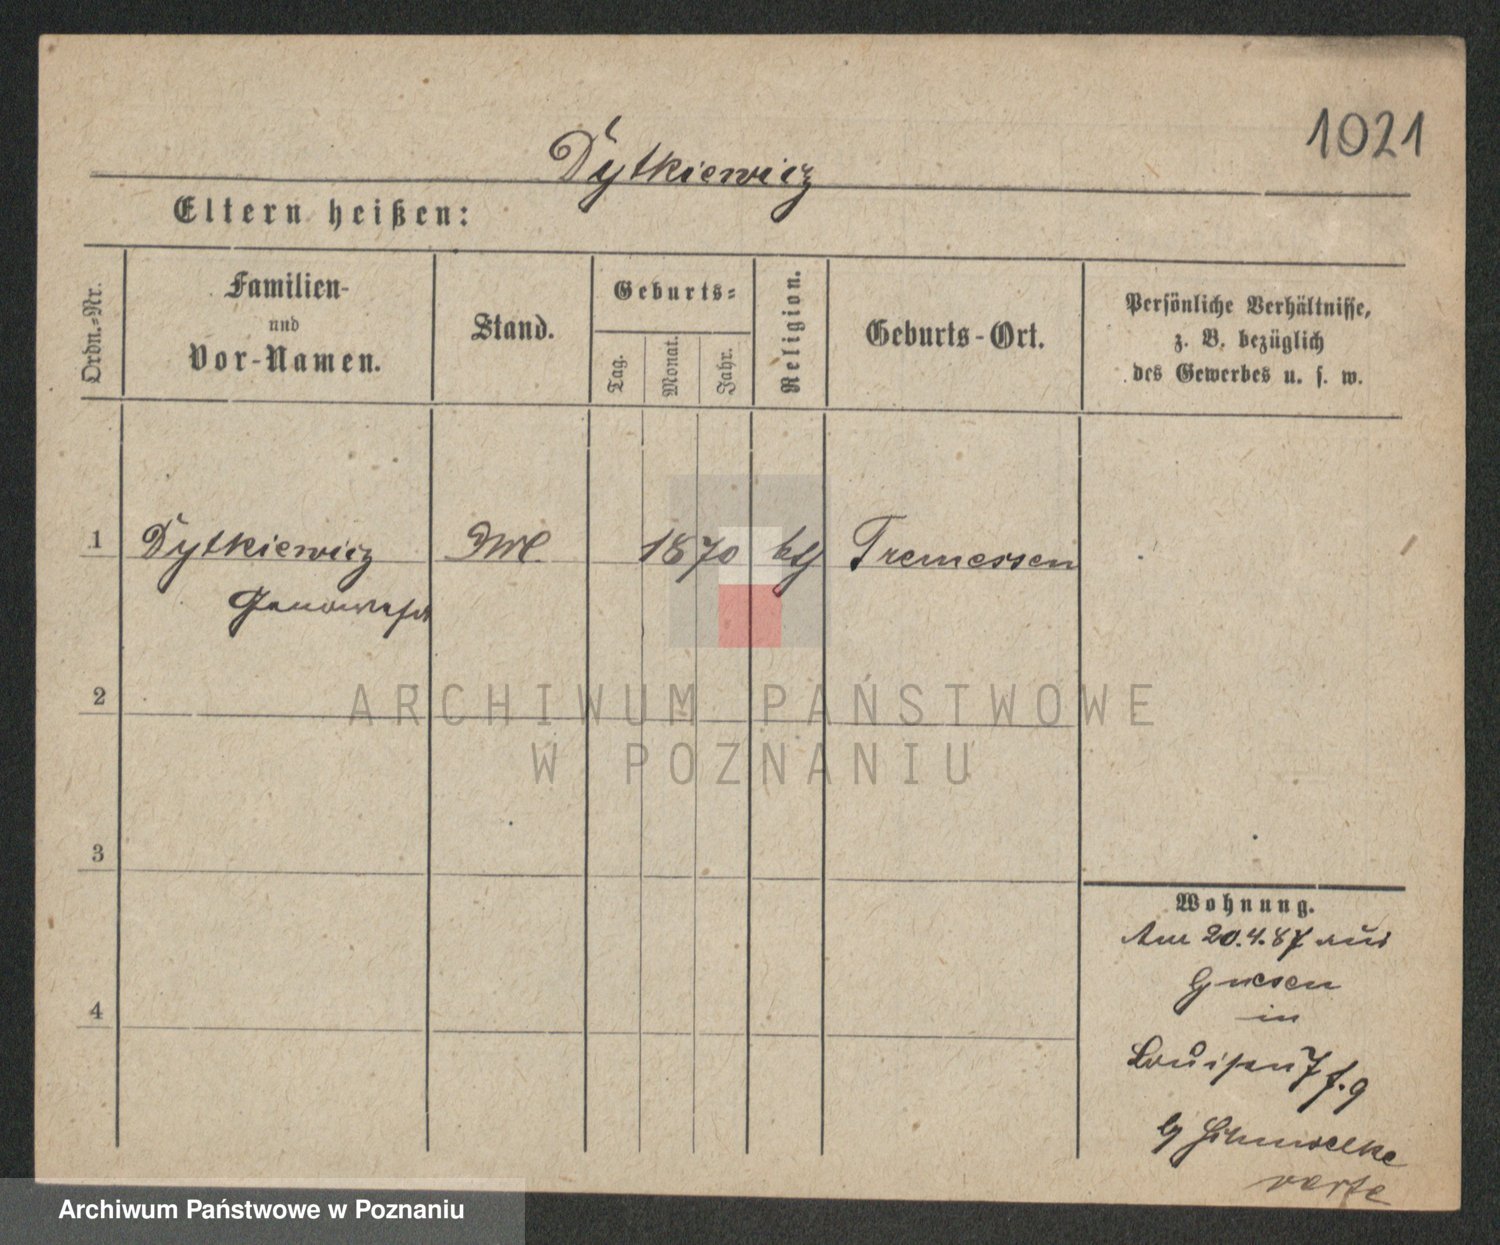 1021
Dytkiewicz
Eltern heißen:
Ordn.-Nr.
Familien-
und
Vor-Namen.
Stand.
Geburts-
Tag.
Monat.
Jahr.
Religion.
Geburts-Ort.
Persönliche Verhältnisse,
z. B. bezüglich
des Gewerbes u. s. w.
1 Dytkiewicz 1870 kth Tremessen
Genowefa
2
ARCHIWUM PAŃSTWOWE
W POZNANIU
3
4
Wohnung.
Am 20.4.87 aus
Gnesen
in
Louisen 7
verte
Archiwum Państwowe w Poznaniu